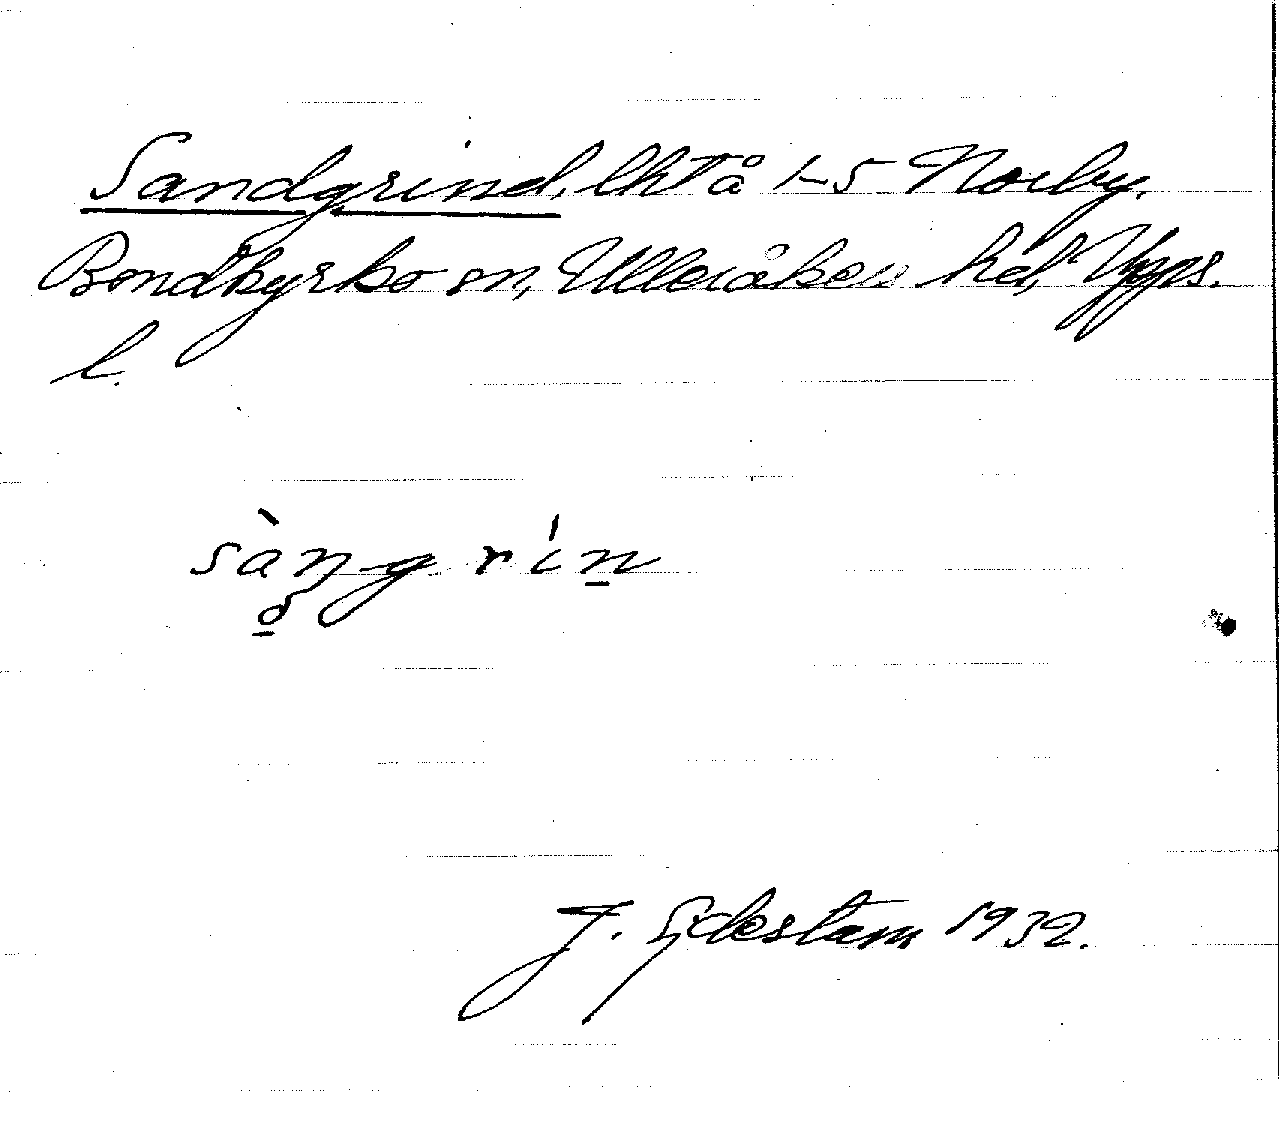 Sandgrind, lht å 1-5 Norby,
Bondkyrko sn, Ulleråkers hd, Upps.
l.
sàngrin
J. 1932.